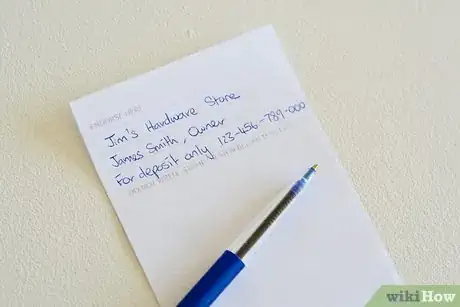 ENDORSE HERE
Jim's Hardware Store
James Smith, Owner
For deposit only 123-456-789-000
wikiHow